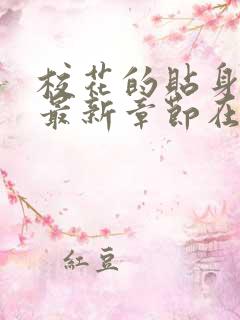 校花的贴身
最新章节在
红豆